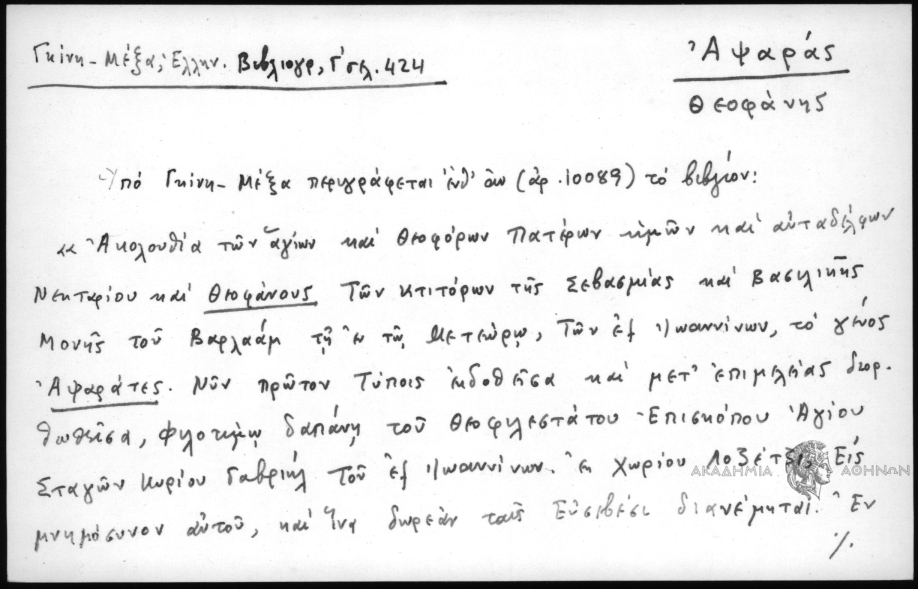 Γκίνη - Μέξα, Ἑλλην. Βιβλιογρ, Γ' σελ. 424
Ἀψαράς
Θεοφάνης
Ὑπό Γκίνη - Μέξα περιγράφεται ἐνθ' ἀν (ἀρ. 10089) τό βιβλίον:
« Ἀκολουθία τῶν ἁγίων καί Θεοφόρων Πατέρων ἡμῶν καί αὐταδέλφων
Νεκταρίου καί Θεοφάνους τῶν κτιτόρων τῆς Σεβασμίας καί Βασιλικῆς
Μονῆς τοῦ Βαρλαάμ τῇ ἐν τῷ Μετεώρῳ, τῶν ἐξ Ἰωαννίνων, τό γένος
Ἀψαράτες. Νῦν πρῶτον τύποις ἐκδοθεῖσα καί μετ' ἐπιμελείας διορ-
θωθεῖσα, φιλοτίμῳ δαπάνῃ τοῦ Θεοφιλεστάτου Ἐπισκόπου Ἁγίου
Σταγῶν Κυρίου Γαβριήλ τοῦ ἐξ Ἰωαννίνων. ἐκ χωρίου Λοζέτζι, Εἰς
μνημόσυνον αὐτοῦ, καί ἵνα δωρεάν τοῖς Εὐσεβέσι διανέμηται. Ἐν
%.
ΑΚΑΔΗΜΙΑ ΑΘΗΝΩΝ